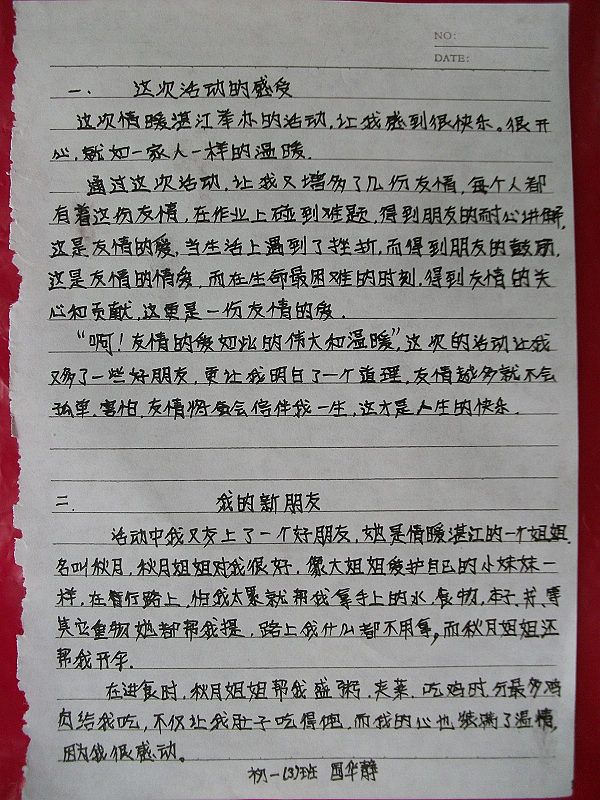 NO:
DATE:
一、 这次活动的感受
这次情暖湛江举办的活动,让我感到很快乐。很开
心,就如一家人一样的温暖.
通过这次活动,让我又增多了几份友情,每个人都
有着这份友情,在作业上碰到难题,得到朋友的耐心讲解,
这是友情的爱,当生活上遇到了挫折,而得到朋友的鼓励,
这是友情的情爱,而在生命最困难的时刻,得到友情的关
心和贡献,这更是一份友情的爱.
“啊!友情的爱如此的伟大和温暖”,这次的活动让我
又多了一些好朋友,更让我明白了一个道理,友情越多就不会
孤单,害怕,友情将会陪伴我一生,这才是人生的快乐.
二. 我的新朋友
活动中我又交上了一个好朋友,她是情暖湛江的一个姐姐.
名叫秋月,秋月姐姐对我很好,像大姐姐爱护自己的小妹妹一
样,在暂行路上,怕我太累就帮我拿手上的水,食物,本子,等
其它重物她都帮我提,路上我什么都不用拿,而秋月姐姐还
帮我开伞.
在进食时,秋月姐姐帮我盛粥,夹菜,吃鸡时,分最多鸡
肉给我吃,不仅让我肚子吃得饱,而我的心也装满了温情,
因为我很感动。
初一(3)班 华静